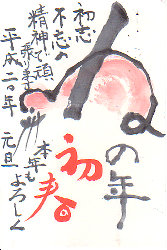 の年
初春
本年も
よろしく
初志
不忘の
精神で頑
平成二〇年 元旦